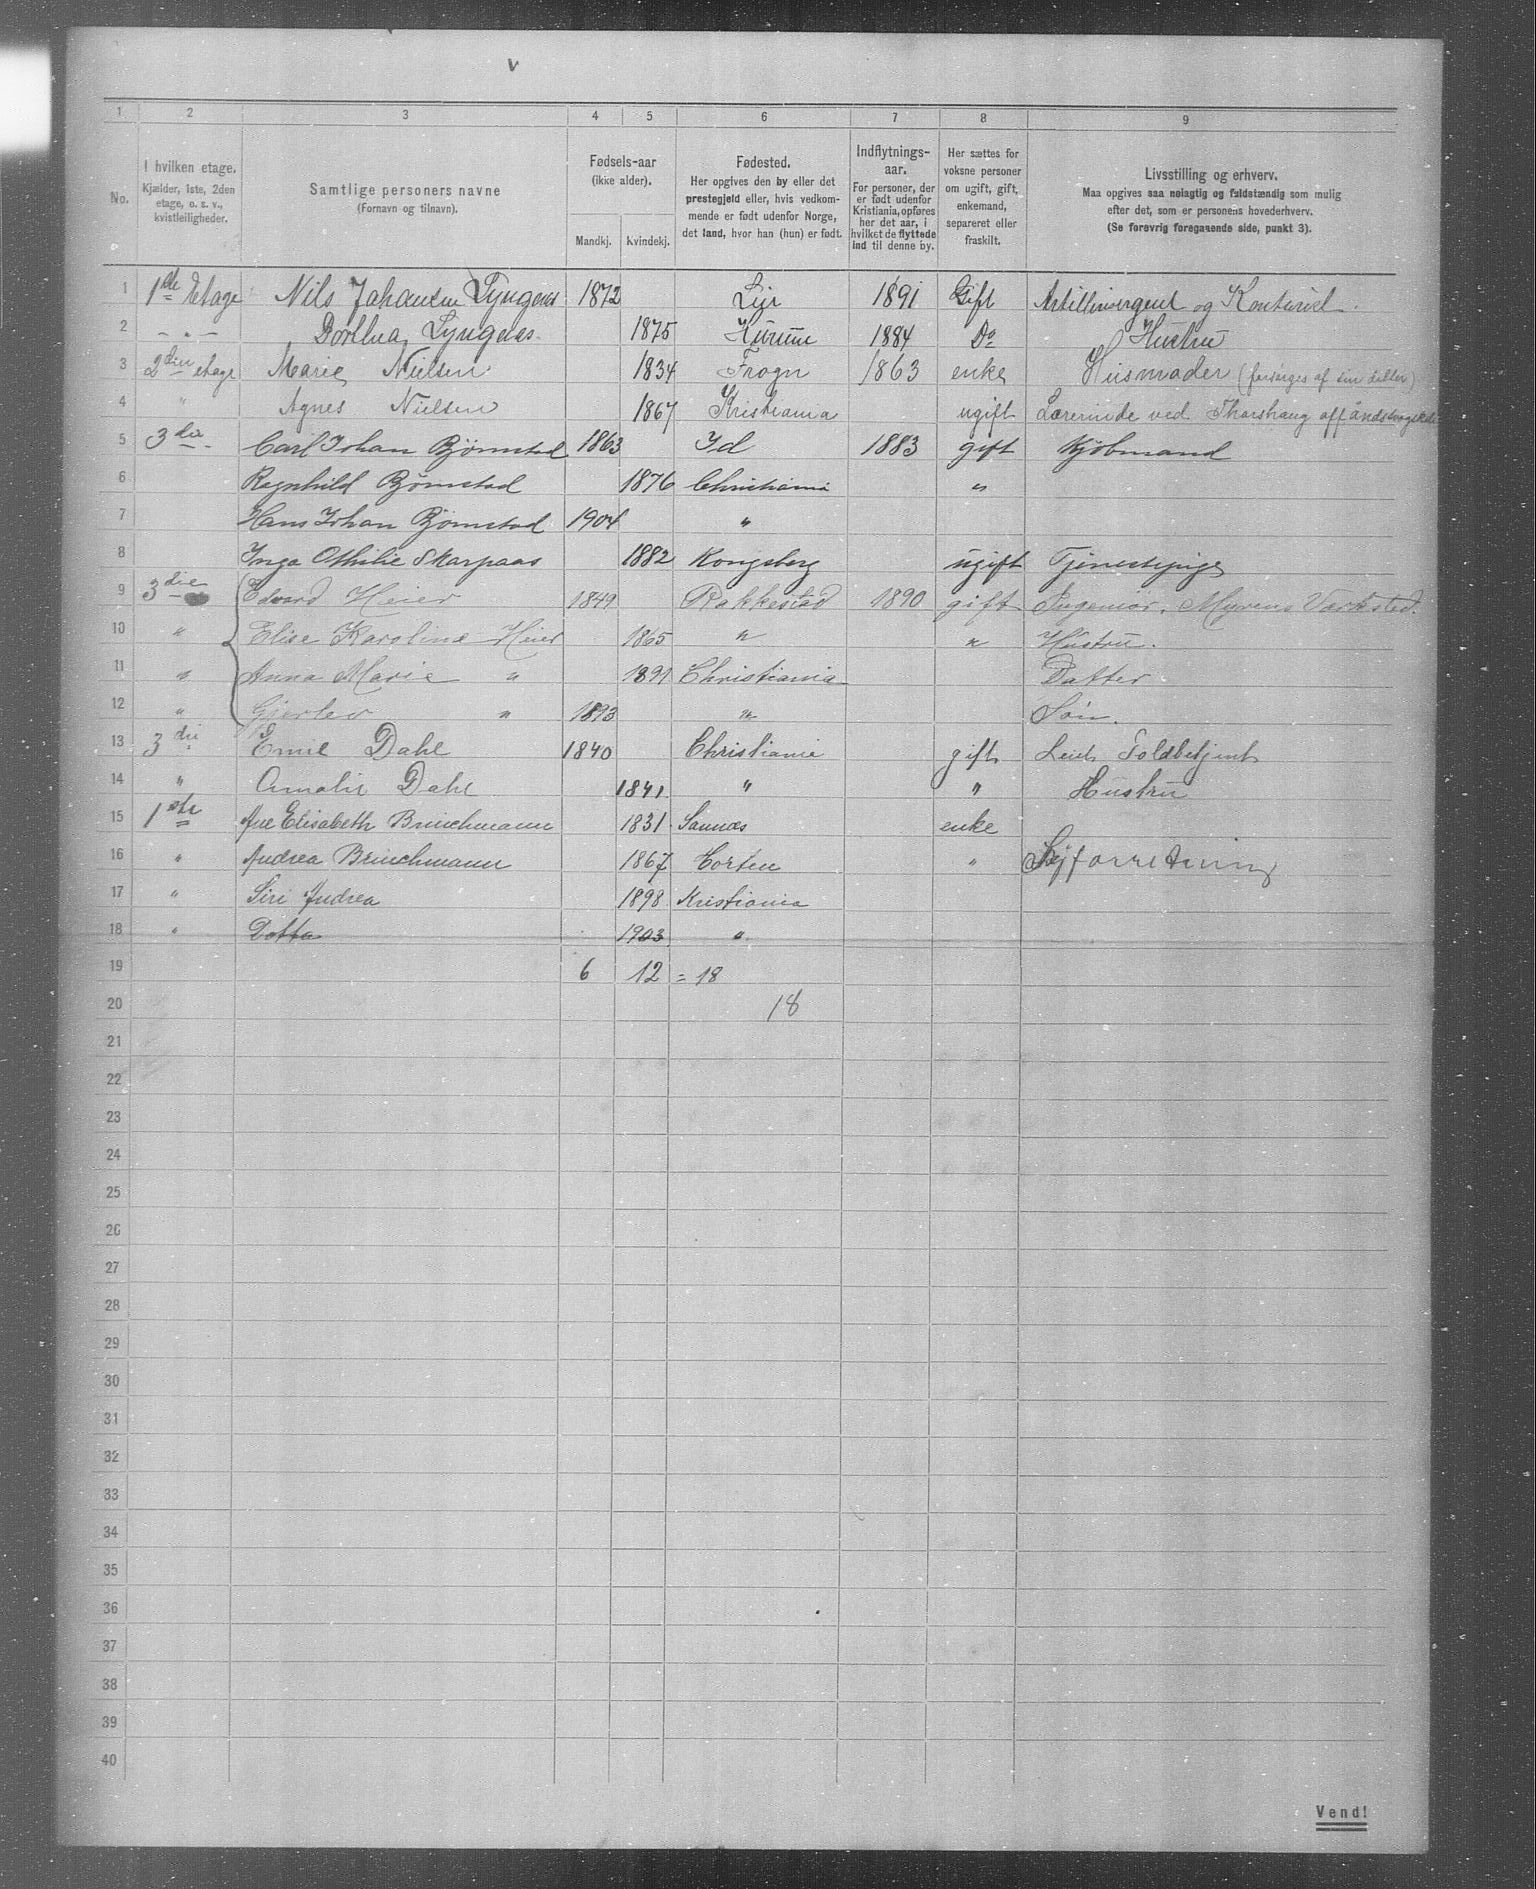 v
1 2 3 4 5 6 7 8 9
No.
I hvilken etage.
Kjælder, 1ste, 2den
etage, o. s. v.,
kvistleiligheder.
Samtlige personers navne
(Fornavn og tilnavn).
Fødsels-aar
(ikke alder).
Mandkj. Kvindekj.
Fødested.
Her opgives den by eller det
prestegjeld eller, hvis vedkom-
mende er født udenfor Norge,
det land, hvor han (hun) er født.
Indflytnings-
aar.
For personer, der
er født udenfor
Kristiania, opføres
her det aar, i
hvilket de flyttede
ind til denne by.
Her sættes for
voksne personer
om ugift, gift,
enkemand,
separeret eller
fraskilt.
Livsstilling og erhverv.
Maa opgives saa nøiagtig og fuldstændig som mulig
efter det, som er personens hovederhverv.
(Se forøvrig foregaaende side, punkt 3).
1 1ste Etage Nils Johansen Lyngaas 1872 Lier 1891 Gift og
2 - " - Dorthea Lyngaas 1875 Hurum 1884 Do Hustru
3 2den etage Marie Nielsen 1834 Frogn 1863 enke Husmoder (forsørges af sin datter)
4 " Agnes Nielsen 1867 Kristiania ugift Lærerinde ved Thorshaug off.
5 3die Carl Johan Bjørnstad 1863 Id 1883 gift Kjøbmand
6 Ragnhild Bjørnstad 1876 Christiania "
7 Hans Johan Bjørnstad 1904 "
8 Inga Othilie Skarpaas 1882 Kongsberg ugift Tjenestepige
9 3die Edvard Heier 1849 Rakkestad 1890 gift Ingeniør, Myrens Værksted.
10 " Elise Karoline Heier 1865 " " Hustru.
11 " Anna Marie " 1891 Christiania Datter
12 " Gjerlev " 1893 " Søn.
13 3die Emil Dahl 1840 Christiania gift Toldbetjent
14 " Amalie Dahl 1841 " " Hustru
15 1ste Ane Elisabeth Brinchmann 1831 Sannæs enke
16 " Andrea Brinchmann 1867 Horten " Syforretning
17 " Siri Andrea 1898 Kristiania
18 " Dotta 1903 "
19 6 12 = 18
20 18
21
22
23
24
25
26
27
28
29
30
31
32
33
34
35
36
37
38
39
40
Vend!